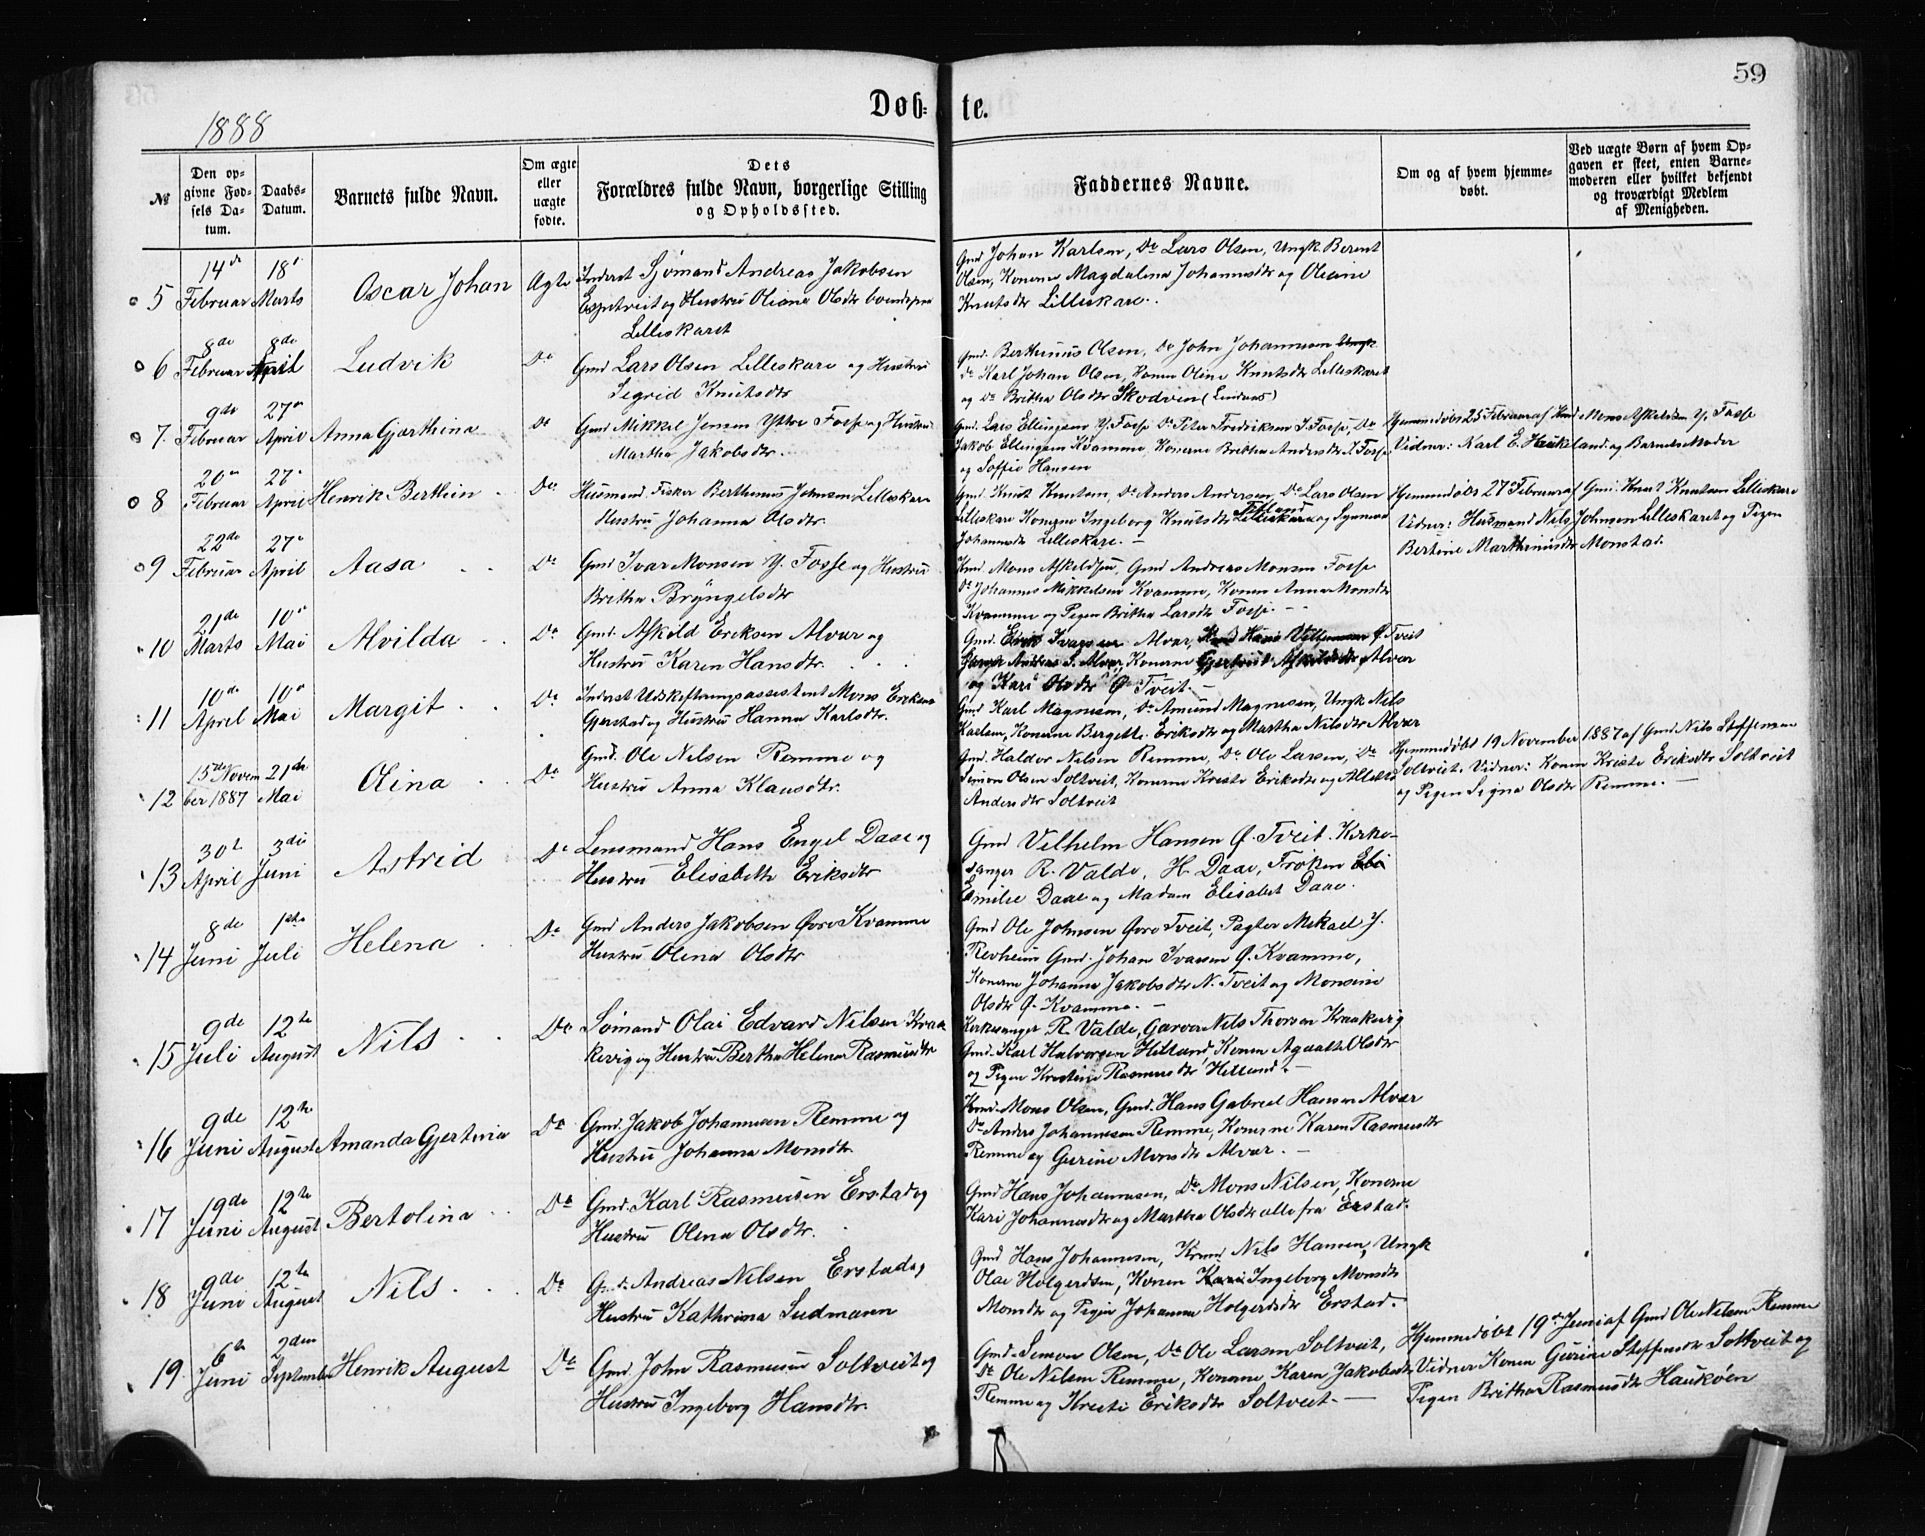 59
1888
Døb-te.
№
Den op-
givne Fød-
sels Da-
tum.
Daabs-
Datum.
Barnets fulde Navn.
Om ægte
eller
uægte
fødte.
Dets
Forældres fulde Navn, borgerlige Stilling
og Opholdssted.
Faddernes Navne.
Om og af hvem hjemme-
døbt.
Ved uægte Børn af hvem Op-
gaven er skeet, enten Barne-
moderen eller hvilket bekjendt
og troværdigt Medlem
af Menigheden.
5
14de Februar
18de Marts
Oscar Johan
Ægte
Inderst Sjømand Andreas Jakobsen
Espetveit og Hustru Oliane Olsdtr
Lilleskaret
Gmd Johan Karlsen, Do Lars Olsen, Ungk. Berent
Olsen, Konerne Magdalena Johannesdtr og Oliane
Knutsdtr Lilleskare.
6
8de Februar
8de April
Ludvik
Do
Gmd Lars Olsen Lilleskare og Hustru
Sigrid Knutsdtr
Gmd. Berthinius Olsen, Do John Johannesen Ungk
Do Karl Johan Olsen, Konen Oline Knutsdtr Lilleskaret
og Do Britha Olsdtr Skodvin (Lindaas)
7
9de Februar
27de April
Anna Gjærthina
Do
Gmd Mikkel Jensen Yttre Fosse og Hustru
Martha Jakobsdtr.
Gmd. Lars Ellingsen Y. Fosse Do Peter Fredriksen I. Fosse, Do
Jakob Ellingsen Kvamme, Konerne Britha Andersdtr I. Fosse
og Soffie Hansen
Hjemmedøbt 25 Februar af Kmd Mons Askelden Y. Fosse
Vidner: Karl E. Haukland og Barnets Moder
8
20de Februar
27de April
Henrik Berthin
Do
Husmand Fisker Berthinius Johnsen Lilleskare
Hustru Johanna Olsdtr.
Gmd Knut Knutsen, Do Anders Andersen, Do Lars Olsen
Lilleskare Konerne Ingeborg Knutsdtr Lilleskare og Synneva
Johannesdtr Lilleskare. –
Hjemmedøbt 27de Februar af Gmd. Knut Knutsen Lilleskare
Vidner: Husmand Nils Johnsen Lilleskaret og Pigen
Bertine Marthinusdtr Monstad.
9
22de Februar
27de April
Aasa
Do
Gmd Ivar Monsen Y. Fosse og Hustru
Britha Bryngelsdtr
Kmd. Mons Askeldsen, Gmd Andreas Monsen Fosse
Do Johannes Mikkelsen Kvamme, Konen Anna Monsdtr
Kvamme og Pigen Britha Larsdtr Fosse.
10
21de Marts
10de Mai
Alvilda
Do
Gmd. Askild Eriksen Alvær og
Hustru Karen Hansdtr.
Gmd. Erik Ivarsen Alvær, Ø. Tveit
Anders S. Alvær, Konerne Gjertrud Askildsdtr Alvær
og Kari Olsdtr Ø. Tveit. –
11
10de April
10de Mai
Margit
Do
Inderst Udskiftningsassistent Mons Eriksen
Gjerstad og Hustru Hanna Karlsdtr.
Gmd Karl Magnesen, Do Amund Magnesen, Ungk Nils
Karlsen, Konerne Bergette Eriksdtr og Martha Nilsdtr Alvær
12
15de November 1887
21de Mai
Olina
Do
Gmd. Ole Nilsen Remme og
Hustru Anna Klausdtr.
Gmd. Haldor Nilsen Remme, Do Ole Larsen, Do
Simon Olsen Soltveit, Konerne Kristi Eriksdtr og
Andersdtr Soltveit
Hjemmedøbt 19 November 1887 af Gmd Nils Steffensen
Soltveit. Vidner: Konen Kristi Eriksdtr Soltveit
og Pigen Signa Olsdtr Remme. –
13
30te April
3die Juni
Astrid
Do
Lensmand Hans Engel Daae og
Hustru Elisabeth Eriksdtr
Gmd Vilhelm Hansen Ø. Tveit. Kirke-
sanger R. Valde, H. Daae, Frøken Eli
Emilie Daae og Madam Elisabet Daae.
14
8de Juni
1ste Juli
Helena
Do
Gmd Anders Jakobsen Øvre Kvamme
Hustru Olina Olsdtr
Gmd Ole Johnsen Øvre Tveit, Pagter Mikael J.
Revheim Gmd. Johan Ivarsen Ø. Kvamme,
Konerne Johanna Jakobsdtr N. Tveit og Monsine
Olsdtr Ø. Kvamme. –
15
9de Juli
12te August
Nils
Do
Sømand Olai Edvard Nilsen Kraa-
kevig og Hustru Bertha Helena Rasmusdtr
Kirkesanger R. Valde, Garver Nils Thorsen Kraakevig
Gmd. Karl Halvorsen Hilland, Konen Agaathe Olsdtr
og Pigen Kristine Rasmusdtr Hilland. –
16
9de Juni
12te August
Amanda Gjertina
Do
Gmd. Jakob Johannesen Remme og
Hustru Johanna Monsdtr.
Kmd. Mons Olsen, Gmd. Hans Gabriel Hansen Alvær
Do Anders Johannesen Remme, Konerne Karen Rasmusdtr
Remme og Gurine Monsdtr Alvær. –
17
19de Juni
12te August
Bertolina
Do
Gmd. Karl Rasmusen Erstad og
Hustru Olena Olsdtr.
Gmd Hans Johannesen, Do Mons Nilsen, Konerne
Kari Johannesdtr og Martha Olsdtr alle fra Erstad.
18
9de Juni
12te August
Nils
Do
Gmd. Andreas Nilsen Erstad og
Hustru Kathrina Ludmann
Gmd Hans Johannesen, Kmd Nils Hansen, Ungk
Olai Holgersen, Konen Kari Ingeborg Monsdtr
Monsdtr og Pigen Johanna Holgersdtr Erstad.
19
6te Juni
2den September
Henrik August
Do
Gmd. John Rasmusen Soltveit og
Hustru Ingeborg Hansdtr.
Gmd. Simon Olsen, Do Ole Larsen Soltveit,
Do Ole Nilsen Remme, Konerne Karen Jakobsdtr
Remme og Kristi Eriksdtr Soltveit –
Hjemmedøbt 19de Juni af Gmd Ole Nilsen Remme
Vidner Konen Gurine Steffensdtr Soltveit og
Pigen Britha Rasmusdtr Haukøen